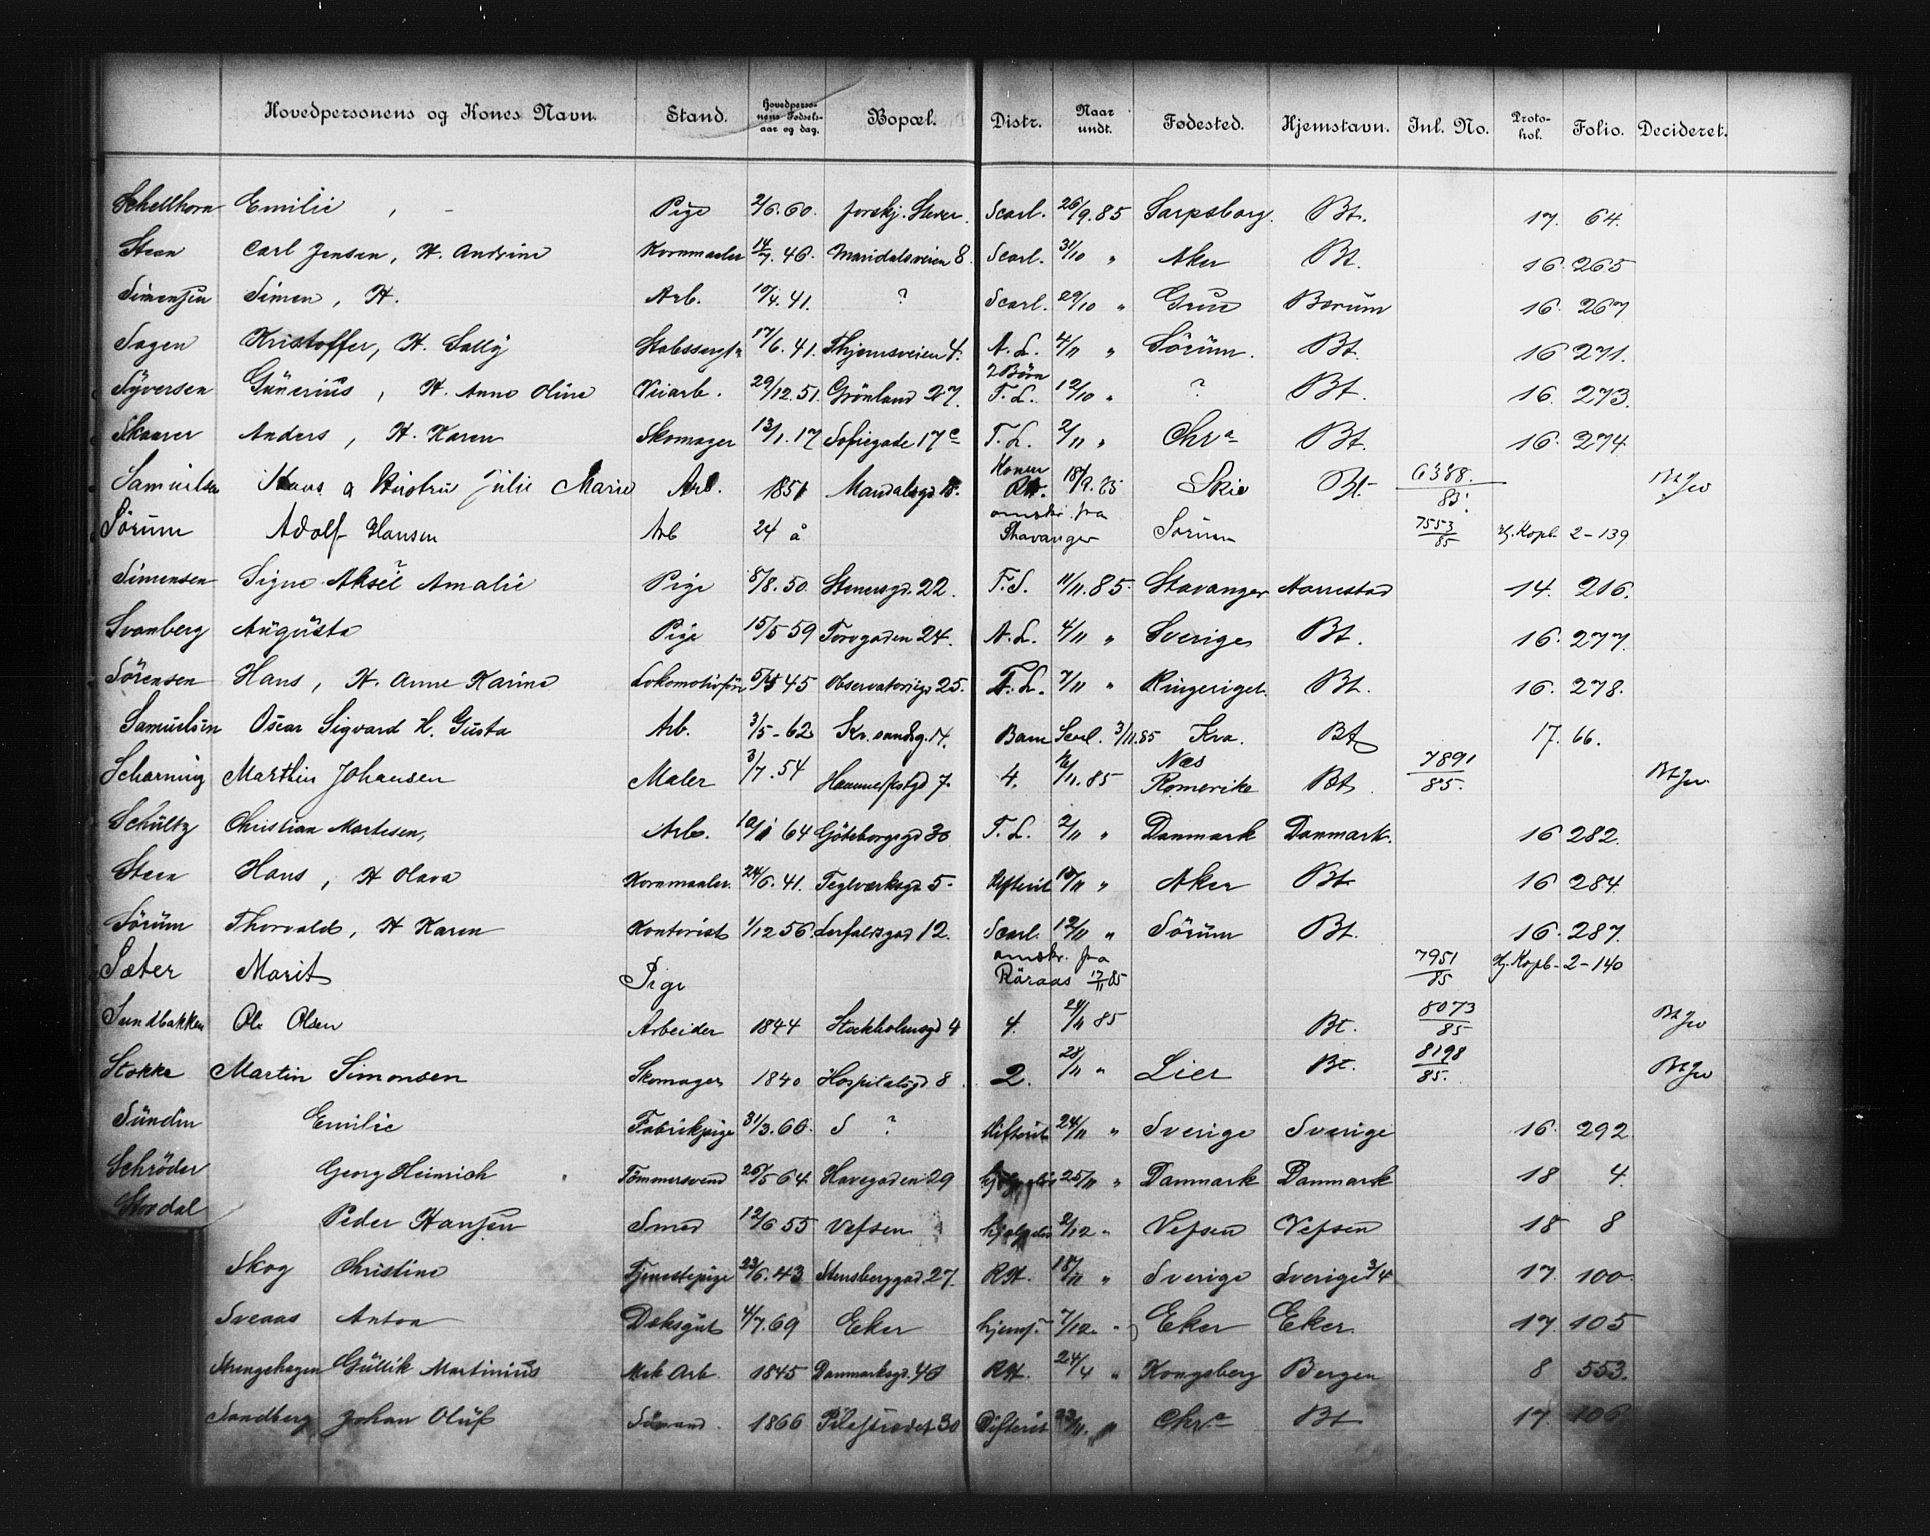 Hovedpersonens og Kones Navn. Stand. Hovedpersonens Fødselsaar og dag. Bopæl. Distr. Naar undt. Fødested. Hjemstavn. Inl. No. Protokol. Folio. Decideret.
Schellhorn Emilie Pige 2/6.60. forskj. Steder. Scarl. 26/9.85 Sarpsborg. Bt. 17. 64.
Steen Carl Jensen, H. Andrine Kornmaaler 14/7.46. Maridalsveien 8. Scarl. 31/10 " Aker Bt. 16. 265
Simensen Simen, H. Arb. 10/4.41. ? Scarl. 29/10 " Grue Bærum 16. 267
Sagen Kristoffer, H. Sally 17/6.41. 4. A.L. 4/11 " Sørum. Bt. 16 271.
Syversen Günerius, H. Anne Oline Veiarb. 29/12.51. Grönland 27. 2 Börn T.L. 12/10 " ? Bt. 16. 273.
Skaarer Anders, H. Karen Skomager 13/1.17 Sofiegade 17c T.L. 2/11 " Chra Bt. 16. 274
Samuelsen Hans Julie Marie Arb. 1851 Mandalsgd 18. Konen RH. 18/9.85 Skie Bt. 6388./85. Bt Jw
Sörum Adolf Hansen Arb 24 å omskr. fra Stavanger Sörum 7553/85 Hj. Kopb. 2-139
Simensen Signe Aksel Amalie Pige 8/8.50. Stenersgd. 22. T.S. 11/11.85. Stavanger Narrestad 14. 216.
Svanberg Augusta Pige 15/5 59 Torvgaden 24. A.L. 4/11 " Sverige Bt. 16. 277.
Sörensen Hans, H. Anne Karine 45 Observatoriegd 25. T.L. 7/11 " Ringeriget. Bt. 16. 278.
Samuelsen Oscar Sigvard H. Gusta Arb. 3/5-62 Kr. sandsg. 14. Barn Scarl. 3/11.85 Kra. Bt 17. 66.
Scharning Marthin Johansen Maler 3/7.54 Hammerfestgd 7. 4. /11.85 Næs Romerike Bt 7891/85. Bt Jw
Schültz Christian Mortesen, Arb. 64 Göteborggd 30. T.L. 2/11 " Danmark Danmark. 16 282.
Steen Hans, H Olava Kornmaaler. 24/6.41. Teglværksgd. 5. Difterit " Aker Bt 16 284.
Sörum Thorvald, H Karen Kontorist 1/12 56. 12. Scarl. 12/11 " Sörum Bt. 16. 287.
Sæter Marit Pige omskr. fra Röraas 17/11 85 7951/85 Hj. Kopb. 2-140
Sundbakken Ole Olsen Arbeider 1844 Stockholmsgd 4 4. 24/11 85 Bt. 8073/85 Bt Jw
Stokke Martin Simonsen Skomager 1840 Hospitalsgd 8 2. 28/11 " Lier Bt. 8198/85. Bt Jw
Sündin Emilie Fabrikpige 31/3.60. S ? Difterit 24/11 " Sverige Sverige 16. 292
Schröder Georg Heinrich Tömmersvend 26/5 64. Havegaden 29 25/11 " Danmark Danmark 18 4.
Stordal Peder Hansen Smed 12/6 55 Vefsen 2/12 " Vefsen Vefsen 18 8
Skog Christine Tjenestepige 23/6.43 Stensberggad. 27. RH. 18/11 " Sverige Sverige 3/4 17. 100.
Sveaas Anton Dæksgut 4/7.69 Eker hjemf. 7/12 " Eker Eker 17. 105
Strengehagen Güllik Martinius Mek Arb. 1845 Danmarksgd. 40 RH. 24/4 " Kongsberg Bergen 8 553.
Sandberg Johan Oluf Sömand. 1866 Pilestrædet 30 Difterit /11 " Chra Bt 17 106